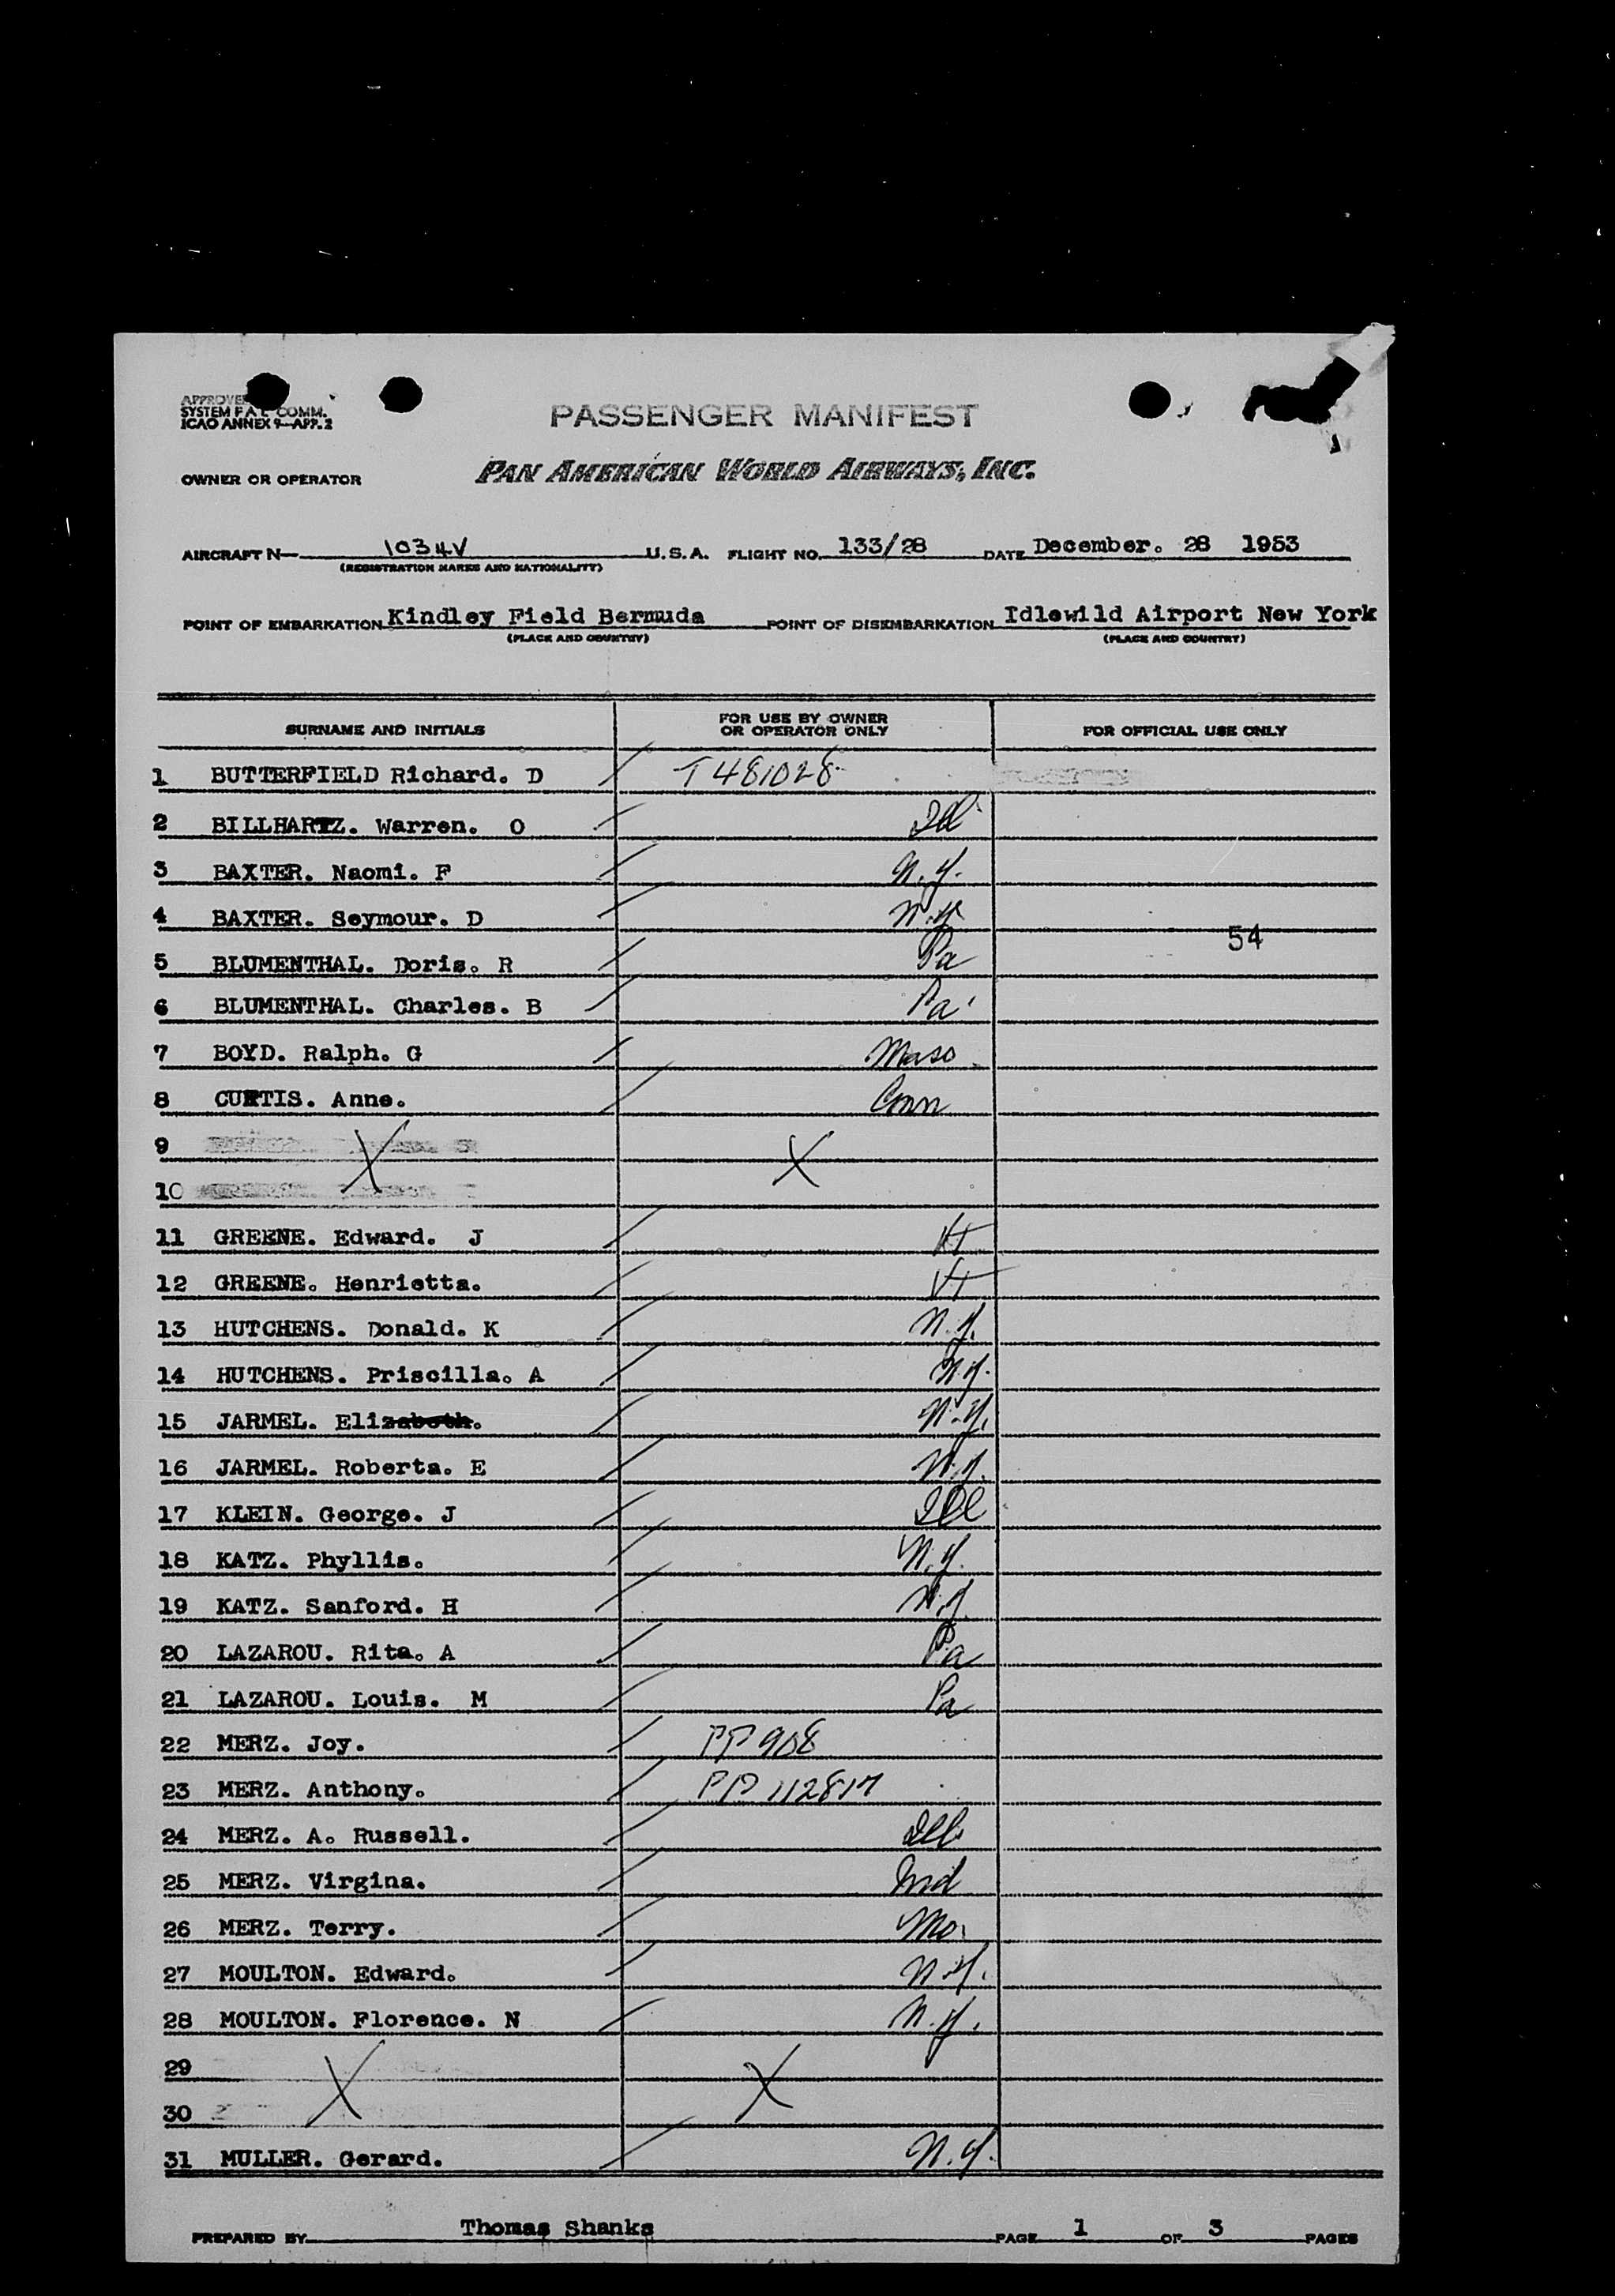 APPROVED
SYSTEM F A L COMM.
ICAO ANNEX 9—APP. 2
PASSENGER MANIFEST
OWNER OR OPERATOR PAN AMERICAN WORLD AIRWAYS, INC.
AIRCRAFT N— 1034V U.S.A. FLIGHT NO. 133/28 DATE December. 28 1953
(REGISTRATION MARKS AND NATIONALITY)
POINT OF EMBARKATION Kindley Field Bermuda POINT OF DISEMBARKATION Idlewild Airport New York
(PLACE AND COUNTRY) (PLACE AND COUNTRY)
SURNAME AND INITIALS FOR USE BY OWNER OR OPERATOR ONLY FOR OFFICIAL USE ONLY
1 BUTTERFIELD Richard. D / T481028
2 BILLHARTZ. Warren. O / Ill
3 BAXTER. Naomi. F / N.Y.
4 BAXTER. Seymour. D / N.Y.
54
5 BLUMENTHAL. Doris. R / Pa
6 BLUMENTHAL. Charles. B / Pa
7 BOYD. Ralph. G / Mass
8 CURTIS. Anne. / Conn
9 X X
10
11 GREENE. Edward. J / Vt
12 GREENE. Henrietta. / Vt
13 HUTCHENS. Donald. K / N.Y.
14 HUTCHENS. Priscilla. A / N.Y.
15 JARMEL. Elizabeth. / N.Y.
16 JARMEL. Roberta. E / N.Y.
17 KLEIN. George. J / Ill
18 KATZ. Phyllis. / N.Y.
19 KATZ. Sanford. H / N.Y.
20 LAZAROU. Rita. A / Pa
21 LAZAROU. Louis. M / Pa
22 MERZ. Joy. / PP 908
23 MERZ. Anthony. / PP 112817
24 MERZ. A. Russell. / Ill
25 MERZ. Virgina. / Ind
26 MERZ. Terry. / Mo.
27 MOULTON. Edward. / N.Y.
28 MOULTON. Florence. N / N.Y.
29 X X
30
31 MULLER. Gerard. / N.Y.
PREPARED BY Thomas Shanks PAGE 1 OF 3 PAGES